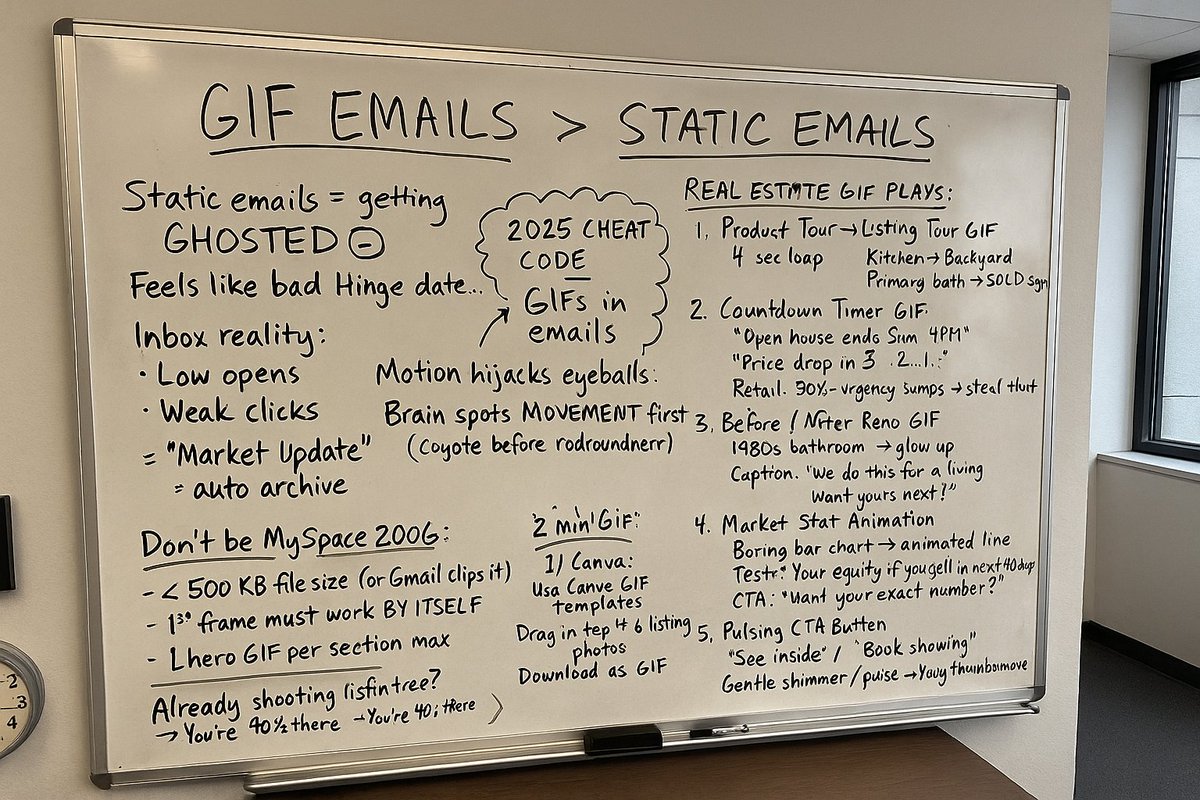 GIF EMAILS > STATIC EMAILS
Static emails = getting
GHOSTED
Feels like bad Hinge date...
Inbox reality:
· Low opens
· Weak clicks
= "Market Update"
= auto archive
2025 CHEAT
CODE
GIFs in
emails
Motion hijacks eyeballs:
Brain spots MOVEMENT first
(Coyote before rodroundnerr)
Don't be MySpace 200G:
- < 500 KB file size (or Gmail clips it)
- 1st frame must work BY ITSELF
- Lhero GIF per section max
Already shooting lisfintree?
→ You're 40% there → You're 40; there
"2 min' GiF:
1) Canva:
Usa Canve GIF
templates
Drag in tep 4 6 listing
photos
Download as GIF
REAL ESTMTE GIF PLAYS:
1, Product Tour → Listing Tour GIF
4 sec loap
Kitchen → Backyard
Primary bath → SOLD sgn
2. Countdown Timer GIF:
"Open house endo Sum 4PM"
"Price drop in 3 .2...1.:"
Retail. 90%- vrgency sumps → steal thut
3, Before / Nfter Reno GIF
1980s bathroom → glow up
Caption. "We do this for a living
Want yours next!"
4. Market Stat Animation
Boring bar chart → animated line
Your equity if you gell in next 40
CTA: "Want your exact number?"
5, Pulsing CTA Butten
"See inside" / "Book showing"
Gentle shimmer / puise →
2
3
4